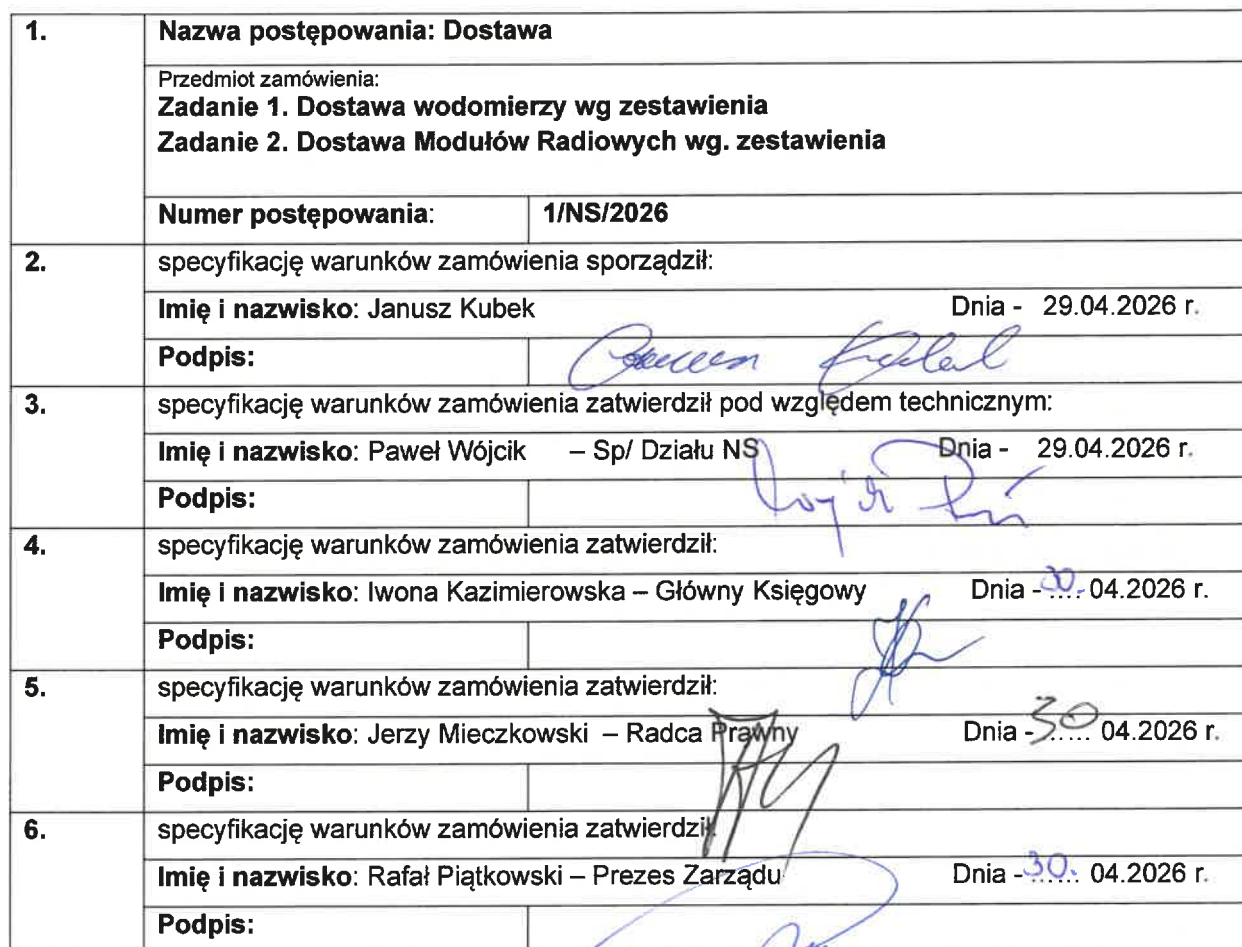 1.
Nazwa postępowania: Dostawa
Przedmiot zamówienia:
Zadanie 1. Dostawa wodomierzy wg zestawienia
Zadanie 2. Dostawa Modułów Radiowych wg. zestawienia
Numer postępowania: 1/NS/2026
2.
specyfikację warunków zamówienia sporządził:
Imię i nazwisko: Janusz Kubek Dnia - 29.04.2026 r.
Podpis:
3.
specyfikację warunków zamówienia zatwierdził pod względem technicznym:
Imię i nazwisko: Paweł Wójcik – Sp/ Działu NS Dnia - 29.04.2026 r.
Podpis:
4.
specyfikację warunków zamówienia zatwierdził:
Imię i nazwisko: Iwona Kazimierowska – Główny Księgowy Dnia - 30. 04.2026 r.
Podpis:
5.
specyfikację warunków zamówienia zatwierdził:
Imię i nazwisko: Jerzy Mieczkowski – Radca Prawny Dnia - 30 04.2026 r.
Podpis:
6.
specyfikację warunków zamówienia zatwierdził:
Imię i nazwisko: Rafał Piątkowski – Prezes Zarządu Dnia - 30. 04.2026 r.
Podpis: